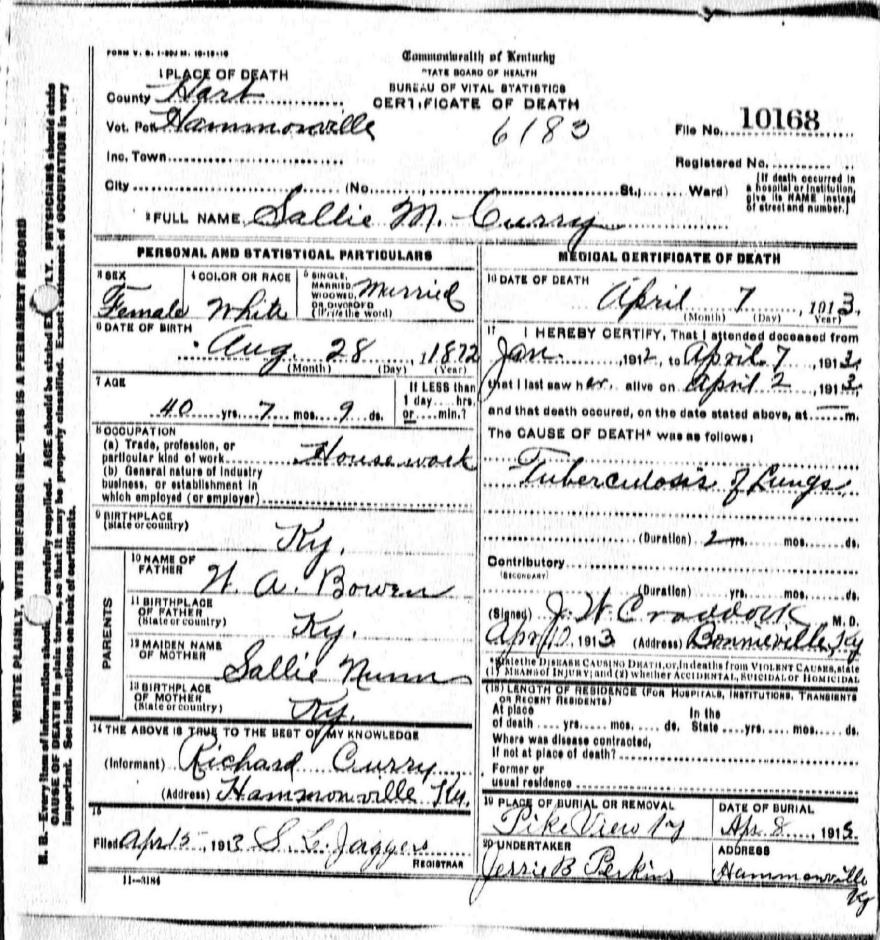 FORM V. S. 1-50M M. 10-15-10
Commonwealth of Kentucky
STATE BOARD OF HEALTH
BUREAU OF VITAL STATISTICS
CERTIFICATE OF DEATH
1 PLACE OF DEATH
County Hart
Vot. Pct. Hammonville
6183
File No. 10168
Inc. Town
Registered No.
City (No. , St.; Ward)
[If death occurred in a hospital or institution, give its NAME instead of street and number.]
2 FULL NAME Sallie M. Curry
PERSONAL AND STATISTICAL PARTICULARS
3 SEX
Female
4 COLOR OR RACE
White
5 SINGLE, MARRIED, WIDOWED, OR DIVORCED (Write the word)
Married
6 DATE OF BIRTH
Aug. 28, 1872
(Month) (Day) (Year)
7 AGE
40 yrs. 7 mos. 9 ds.
If LESS than 1 day.... hrs. or.... min.?
8 OCCUPATION
(a) Trade, profession, or particular kind of work Housework
(b) General nature of industry business, or establishment in which employed (or employer)
9 BIRTHPLACE
(State or country)
Ky.
PARENTS
10 NAME OF FATHER
W. A. Bowen
11 BIRTHPLACE OF FATHER
(State or country)
Ky.
12 MAIDEN NAME OF MOTHER
Sallie Nunn
13 BIRTHPLACE OF MOTHER
(State or country)
Ky.
14 THE ABOVE IS TRUE TO THE BEST OF MY KNOWLEDGE
(Informant) Richard Curry
(Address) Hammonville Ky.
15
Filed Apr 15 1913 S. L. Jaggers
REGISTRAR
11-3184
MEDICAL CERTIFICATE OF DEATH
16 DATE OF DEATH
April 7, 1913.
(Month) (Day) (Year)
17 I HEREBY CERTIFY, That I attended deceased from
Jan. , 1912, to April 7 1913,
that I last saw her alive on April 2 , 1913,
and that death occured, on the date stated above, at — m.
The CAUSE OF DEATH* was as follows:
Tuberculosis of Lungs
(Duration) 2 yrs. mos. ds.
Contributory
(SECONDARY)
(Duration) yrs. mos. ds.
(Signed) J. W. Craddock M. D.
1913 (Address) Bonnieville Ky
*State the DISEASE CAUSING DEATH, or, in deaths from VIOLENT CAUSES, state
(1) MEANS OF INJURY; and (2) whether ACCIDENTAL, SUICIDAL or HOMICIDAL
(18) LENGTH OF RESIDENCE (FOR HOSPITALS, INSTITUTIONS, TRANSIENTS
OR RECENT RESIDENTS)
At place of death .... yrs. .... mos. .... ds. In the State .... yrs. .... mos. .... ds.
Where was disease contracted,
If not at place of death?
Former or
usual residence
19 PLACE OF BURIAL OR REMOVAL
Pike View Ky
DATE OF BURIAL
Apr. 8 , 1913
20 UNDERTAKER
Jessie B Perkins
ADDRESS
Hammonville Ky
WRITE PLAINLY, WITH UNFADING INK—THIS IS A PERMANENT RECORD
N. B.—Every item of information should carefully supplied. AGE should be stated EX LY. PHYSICIANS should state
CAUSE OF DEATH in plain terms, so that it may be properly classified. Exact statement of OCCUPATION is very
important. See instructions on back of certificate.